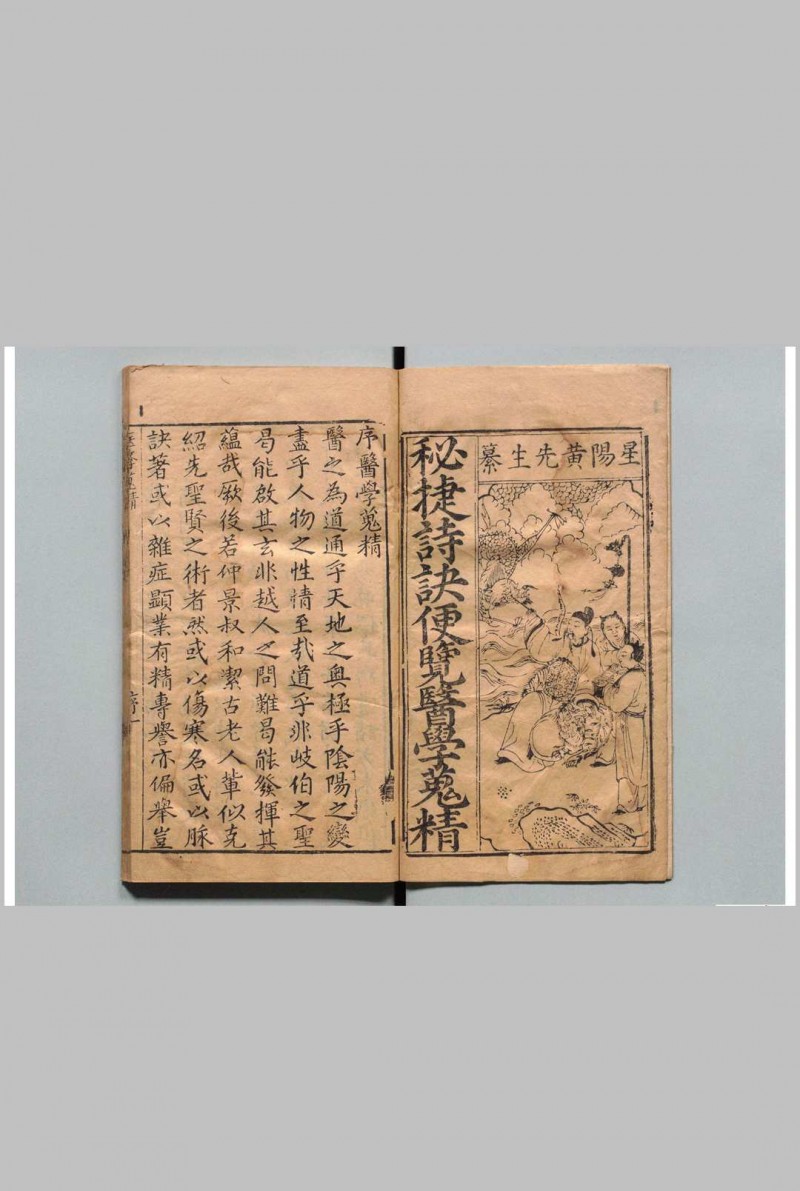 星陽黃先生纂
秘捷詩訣便覽醫學蒐精
序醫學蒐精
醫之為道通乎天地之奧極乎陰陽之變
盡乎人物之性情至哉道乎非岐伯之聖
曷能啟其玄非越人之問難曷能發揮其
蘊哉厥後若仲景叔和潔古老人軰似克
紹先聖賢之術者然或以傷寒名或以脈
訣著或以雜症顯業有精專譽亦偏舉豈
序一